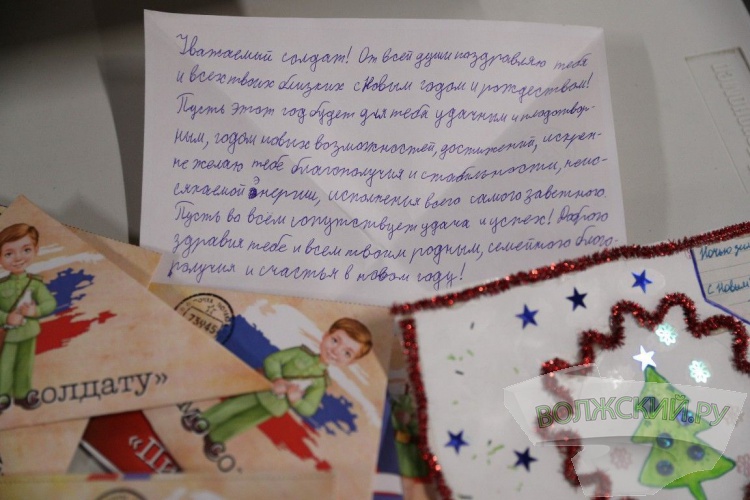 Уважаемый солдат! От всей души поздравляю тебя
и всех твоих близких с Новым годом и рождеством!
Пусть этот год будет для тебя удачным и плодотвор-
ным, годом новых возможностей, достижений, искрен-
не желаю тебе благополучия и стабильности, неис-
сякаемой Энергии, исполнения всего самого заветного.
Пусть во всём сопутствует удача и успех! Доброго
здравия тебе и всем твоим родным, семейного благо-
получия и счастья в новом году!
Ночью
с Новым
солдату»
73945
«П
ВОЛЖСКИЙ.РУ